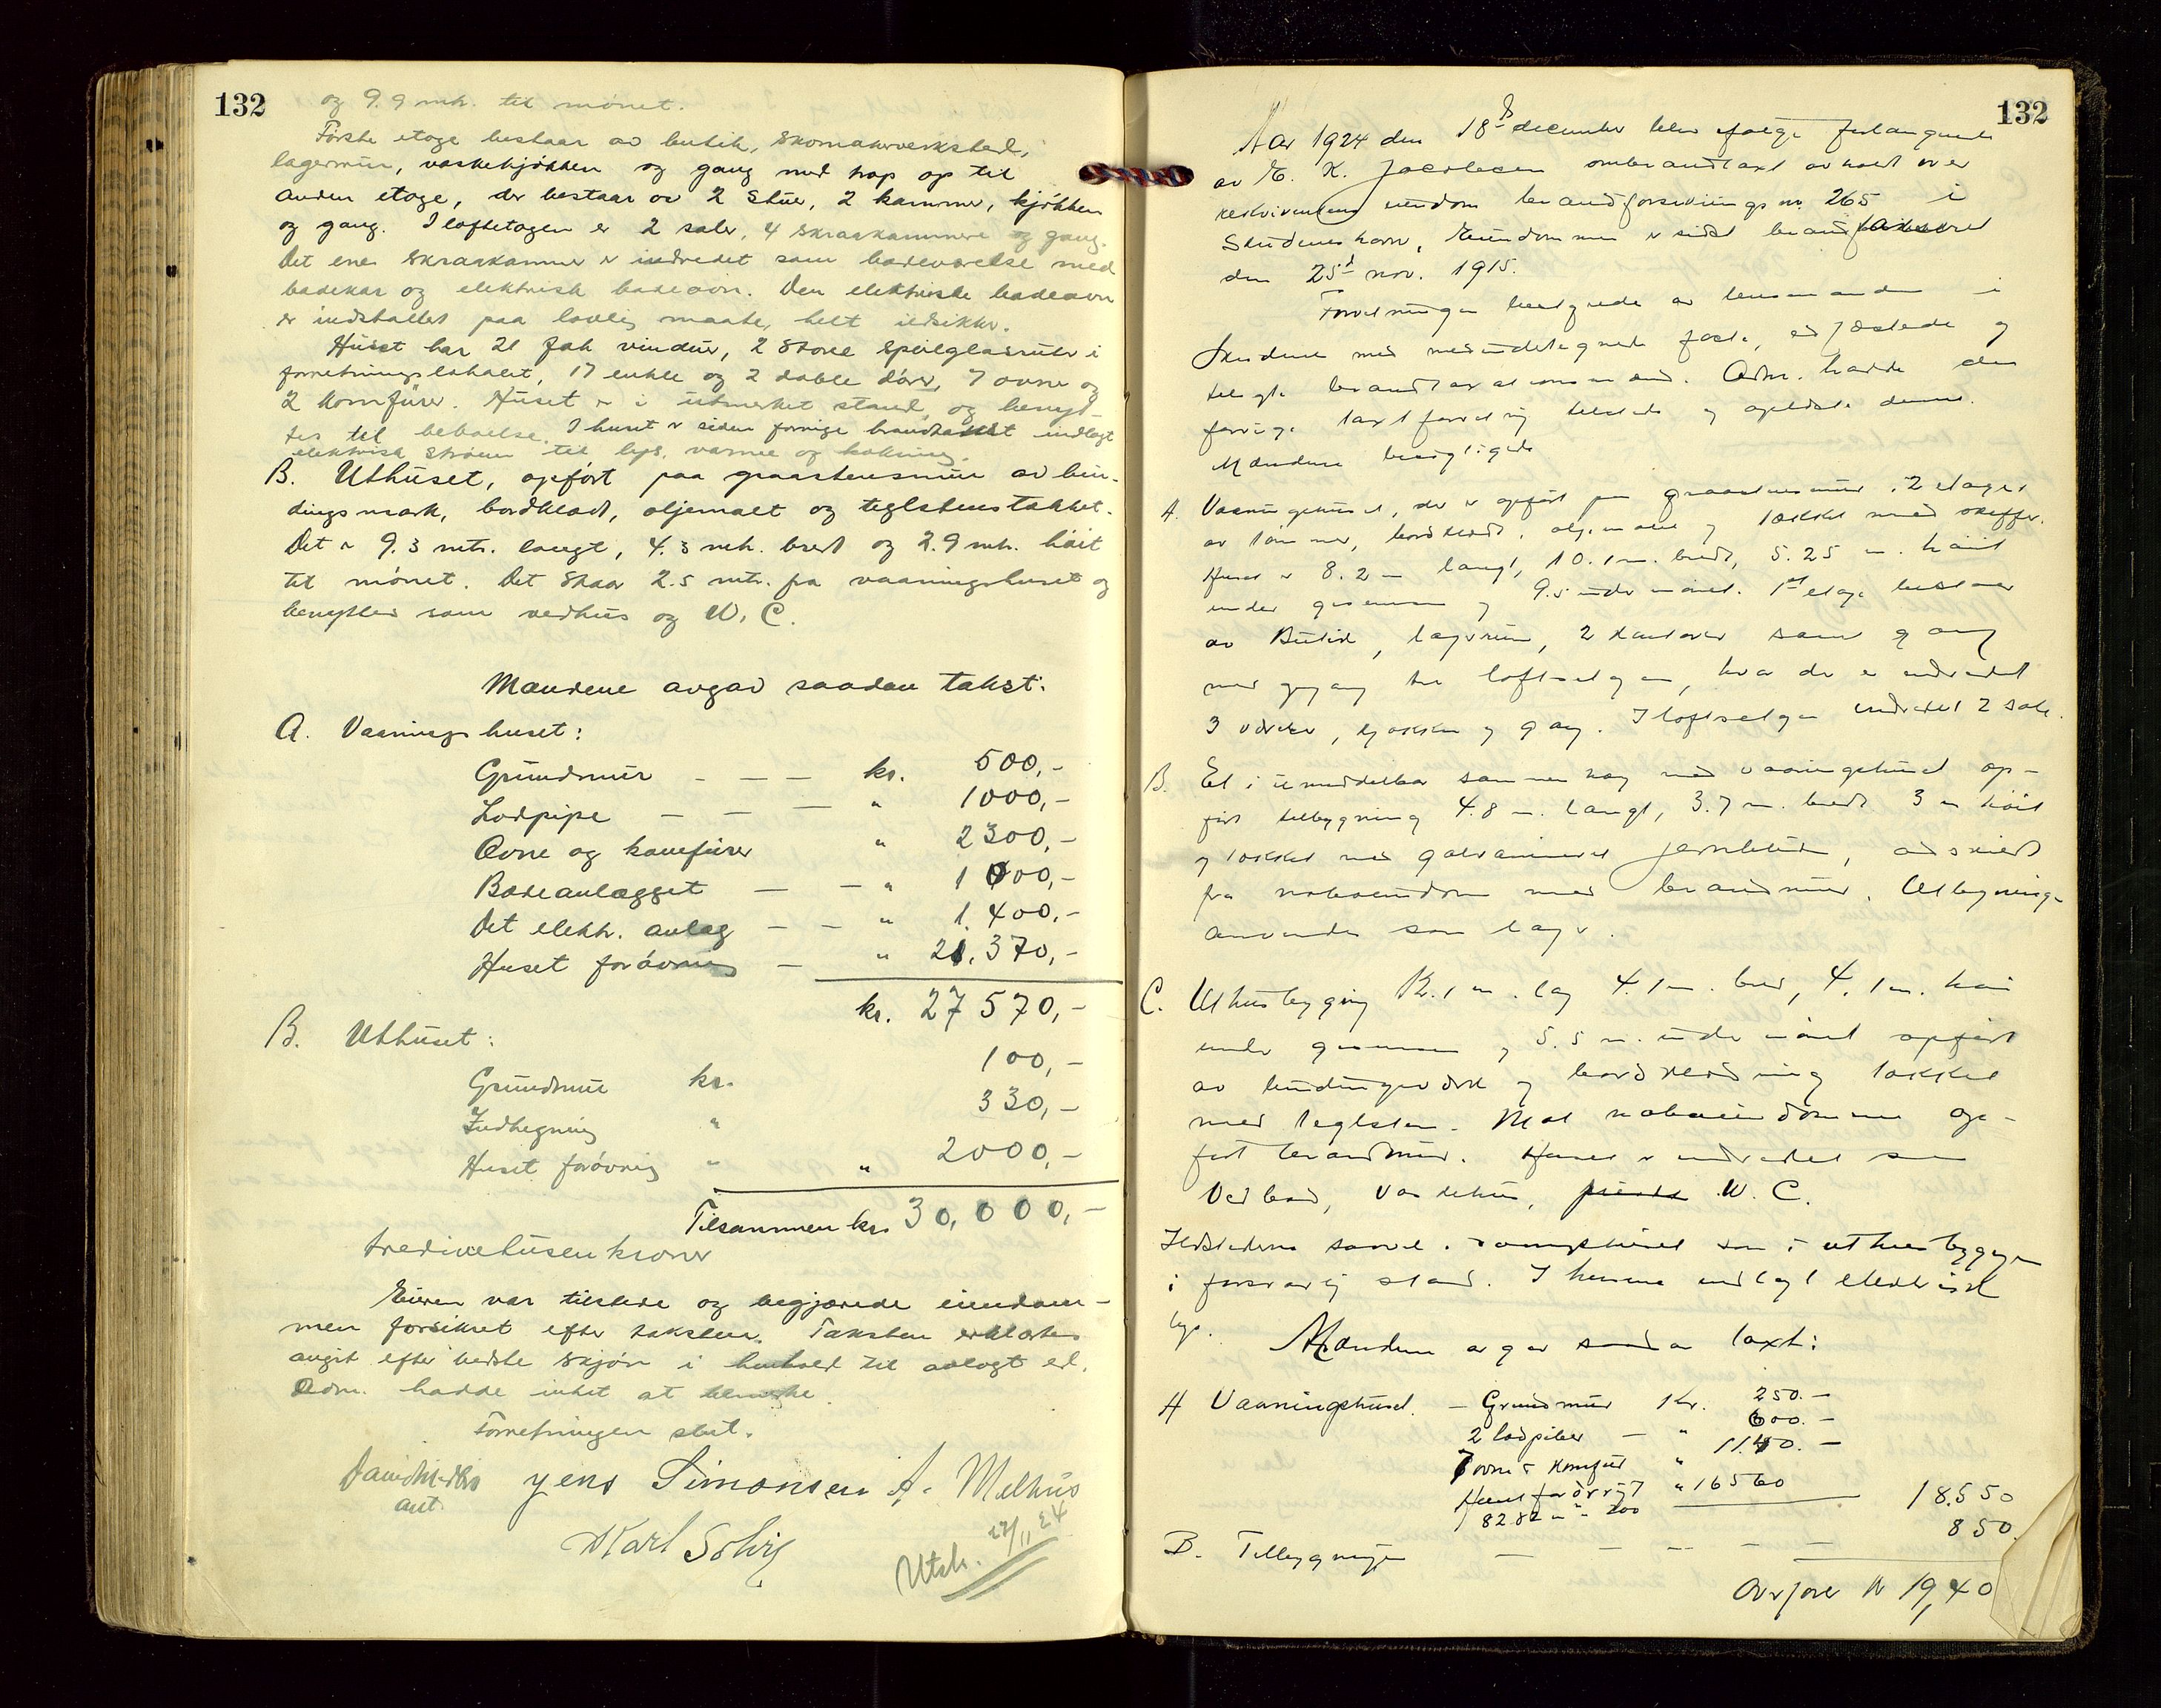 132
og 9.9 mtr. til mønet.
Første etage bestaar av butik, skomakerverksted,
lagerrum, vaskekjøkken og gang med trap op til
anden etage, der bestaar av 2 stuer, 2 kammer, kjøkken
og gang. I loftetagen er 2 saler, 4 skraakammere og gang.
Det ene skraakammer er indredet som badeværelse med
badekar og elektrisk badeovn. Den elektriske badeovn
er indstallert paa lovlig maate, helt ildsikker.
Huset har 21 fah vinduer, 2 store speilglasruter i
forretningslokalet, 17 enkle og 2 doble dører, 7 ovne og
2 komfürer. Huset er i utmerket stand, og benyt-
tes til beboelse. I huset er siden forrige brandtakst indlagt
elektrisk strøm til lys, varme og kokning.
B. Uthuset, opført paa graastensmur av bin-
dingsverk, bordklædt, oljemalt og teglstenstækket.
Det er 9.3 mtr. langt, 4.3 mtr. bredt og 2.9 mtr. høit
til mønet. Det staar 2.5 mtr. fra vaaningshuset og
benyttes som vedhus og W. C.
Mændene avgav saadan takst:
A. Vaaningshuset:
Grundmur - - - kr. 500,-
Lodpipe - - - " 1000,-
Ovne og komfürer " 2300,-
Badeanlægget - - " 1000,-
Det elektr. anlæg - - " 1.400,-
Huset forøvrig - " 21.370,-
kr. 27 570,-
B. Uthuset:
Grundmur kr. 100,-
Indhegning " 330,-
Huset forøvrig " " 2000,-
Tilsammen kr. 30,000,-
tredivetusen kroner
Eieren var tilstede og begjærede eiendom-
men forsikret efter taksten. Taksten erklærtes
avgit efter bedste skjøn i henhold til avlagt ed.
Adm. hadde intet at bemerke
Forretningen slut.
aut. Jens Simonsen A. Melhus
Karl Solvig
Utsk. 27/11 24
132
Aar 1924 den 18d december blev efter forlangende
av E. K. Jacobsen ombrandtaxt avholdt over
rekvirentens eiendom brandforsikrings nr. 265 i
Skudeneshavn, Eiendommen er sidst brandtakseret
den 25d nov. 1915.
Forretningen bestyrede av lensmanden i
Skudenes med medundertegnede faste, edfæstede og
tillagte brandtaxationsmænd. Adm. hadde den
forrige taxtforretning tilstede og oplæste denne.
Mændene besigtigede
A. Vaaningshuset, der er opført paa graastensmur i 2 etager
av tømmer, bordklædt, oljemalt og tækket med skiffer.
Huset er 8.2 m langt, 10.1 m. bredt, 5.25 m. høit
under gesimsen og 9.5 under mønet. 1st etage bestaar
av Butik, lagerrum, 2 kontorer samt gang
med opgang til loftsetagen, hvor der er indredet
3 værelser, kjøkken og gang. I loftsetagen indredet 2 sale.
B. Et i umiddelbar sammenhæng med vaaningshuset op-
ført tilbygning 4.8 m. langt, 3.7 m. bredt 3 m høit
og tækket med galvaniseret jernblik, adskilt
fra naboeiendom med brandmur. Tilbygningen
anvendes som lager.
C. Uthusbygning 12.1 m. lang 4.1 m. bred, 4.1 m. høi
under gesimsen og 5.5 m. under mønet opført
av bindingsverk og bordklædning tækket
med teglsten. Mot naboeiendommen op-
ført brandmur. Huset er indredet som
Vedbod, Vaskehus, W. C.
Ildstederne saavel i vaaningshuset som i uthusbygningen
i forsvarlig stand. I husene indlagt elektrisk
lys.
Mændene avgav saadan taxt:
A Vaaningshuset. - Grundmur Kr. 250.-
2 lodpiber - " 600.-
7 ovne & komfur " 1140.-
Huset forøvrigt " 16560 18.550
B. Tilbygningen - - - - - 850.
Overføres kr 19,40